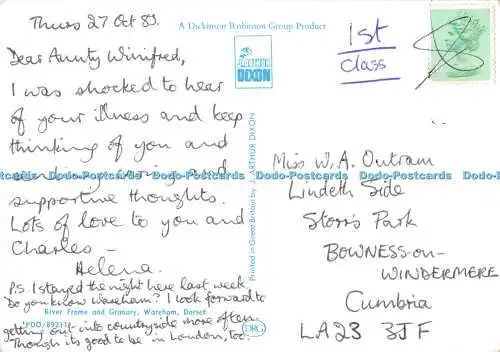 Thurs 27 Oct 83.
A Dickinson Robinson Group Product
Dear Aunty Winifred,
I was shocked to hear
of your illness and keep
thinking of you and
sending loving and
supportive thoughts.
Lots of love to you and
Charles –
Helena.
P.S. I stayed the night here last week.
Do you know Wareham? I look forward to
getting out into countryside more often.
Though its good to be in London, too.
River Frome and Granary, Wareham, Dorset
PDO/89211
DRG
ARTHUR DIXON
Printed in Great Britain by J. ARTHUR DIXON
1st
class
Miss W. A. Outram
Lindeth Side
Storrs Park
BOWNESS-on-
WINDERMERE
Cumbria
LA23 3JF
Dodo-Postcards Dodo-Postcards Dodo-Postcards Dodo-Postcards Dodo-Postcards Dodo-Postcards